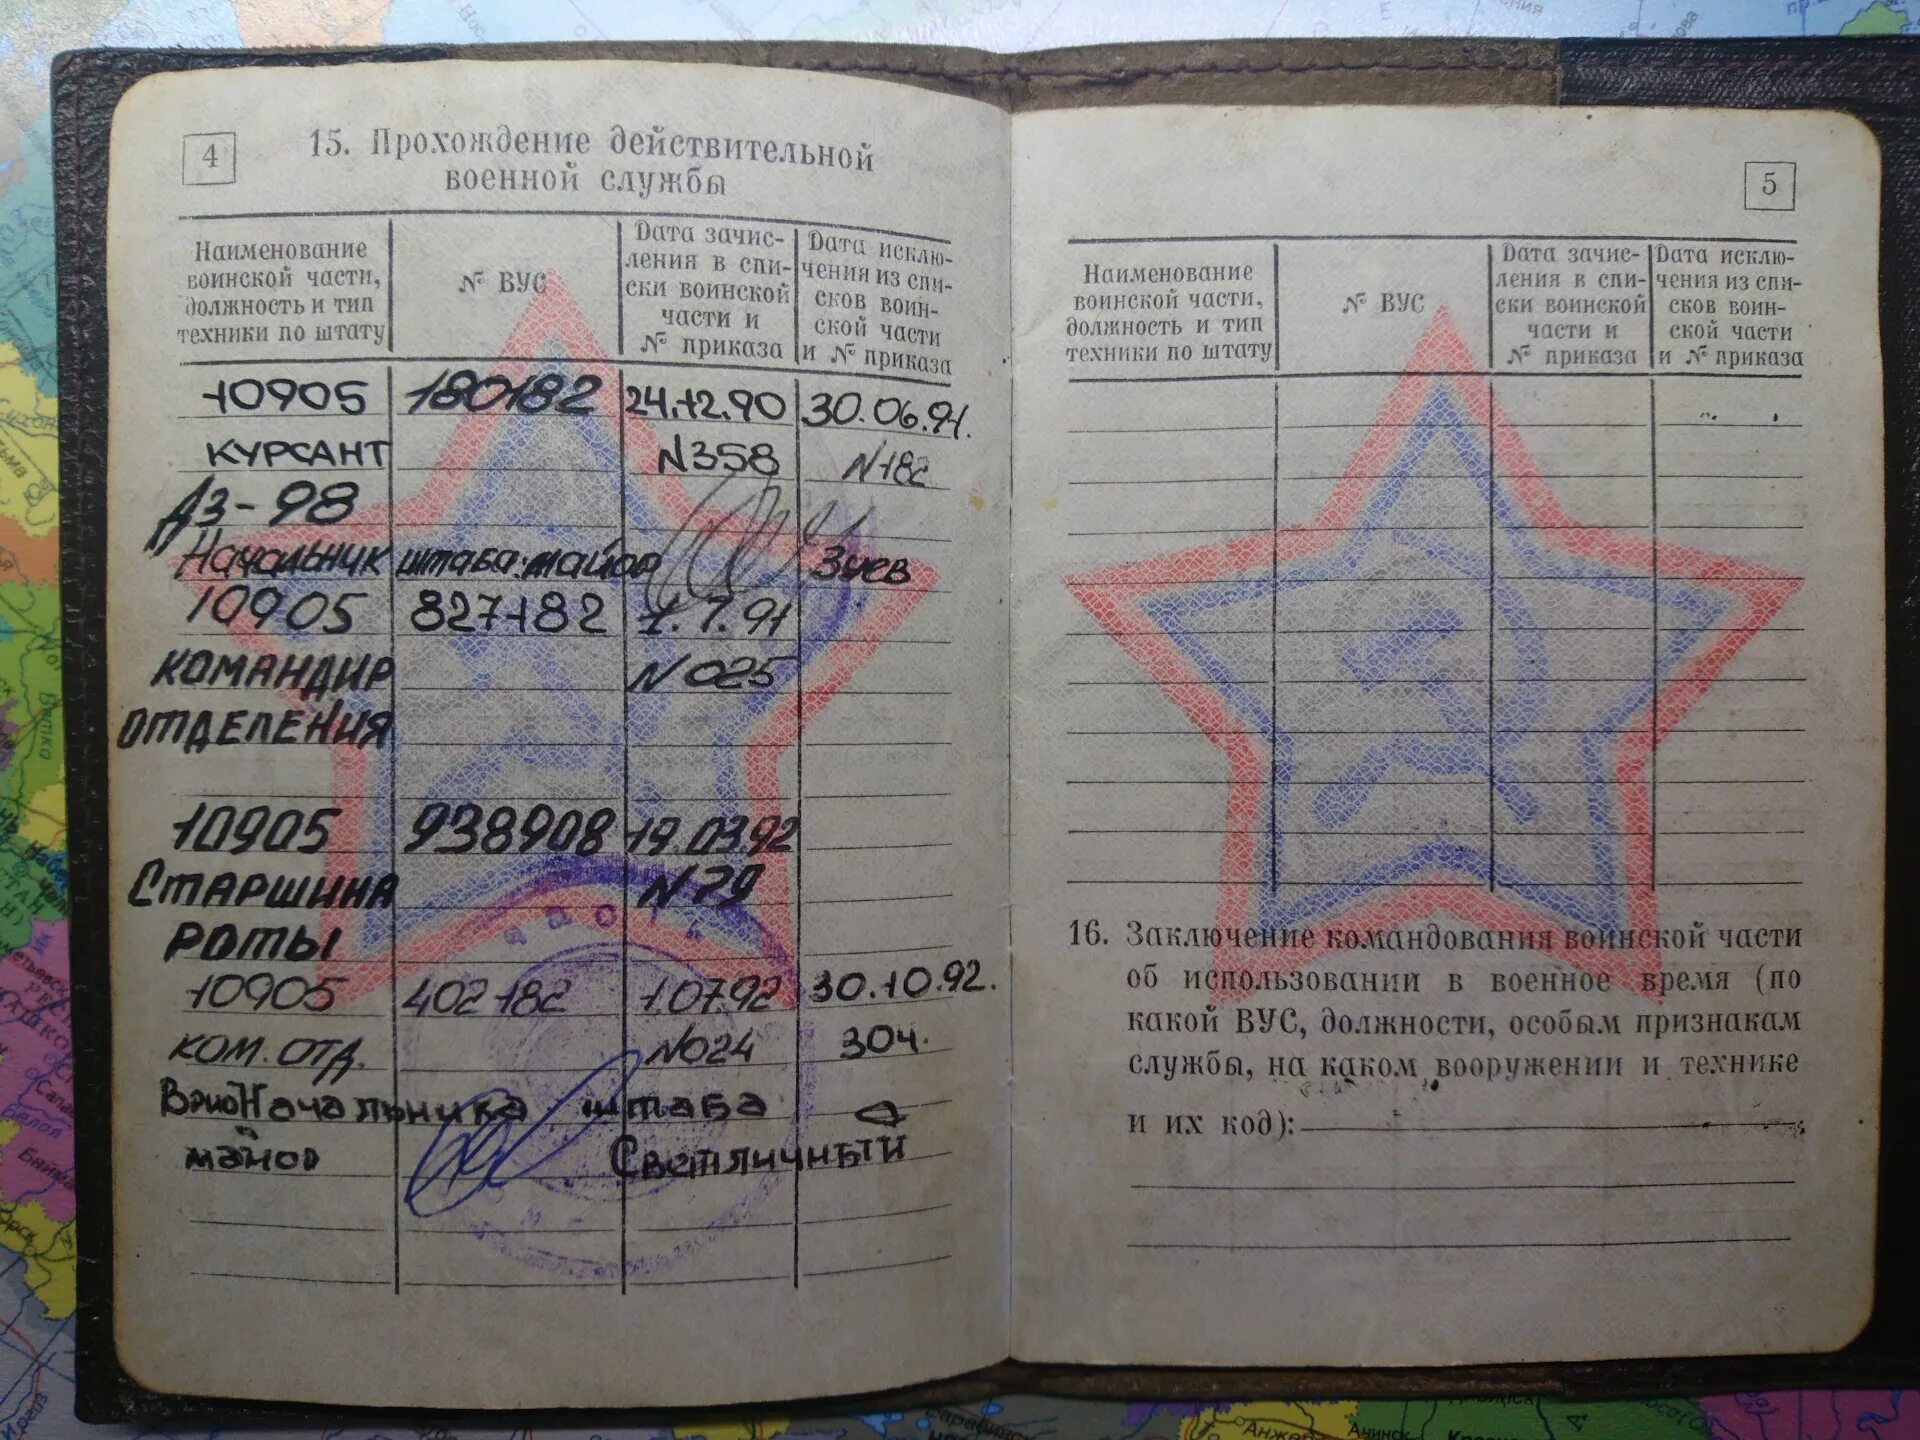 4
15. Прохождение действительной
военной службы
Наименование
воинской части,
должность и тип
техники по штату
№ ВУС
Дата зачис-
ления в спи-
ски воинской
части и
№ приказа
Дата исклю-
чения из спи-
сков воин-
ской части
и № приказа
10905 180182 24.12.90 30.06.91.
КУРСАНТ N358 N182
ДЗ-98
Начальник штаба: майор Зуев
10905 827182 1.7.91
КОМАНДИР N025
ОТДЕЛЕНИЯ
10905 938908 19.03.92
СТАРШИНА N79
РОТЫ
10905 402182 1.07.92 30.10.92.
КОМ. ОТД. N024 304.
ВриоНачальника штаба
майор Светличный
5
Наименование
воинской части,
должность и тип
техники по штату
№ ВУС
Дата зачис-
ления в спи-
ски воинской
части и
№ приказа
Дата исклю-
чения из спи-
сков воин-
ской части
и № приказа
16. Заключение командования воинской части
об использовании в военное время (по
какой ВУС, должности, особым признакам
службы, на каком вооружении и технике
и их код):